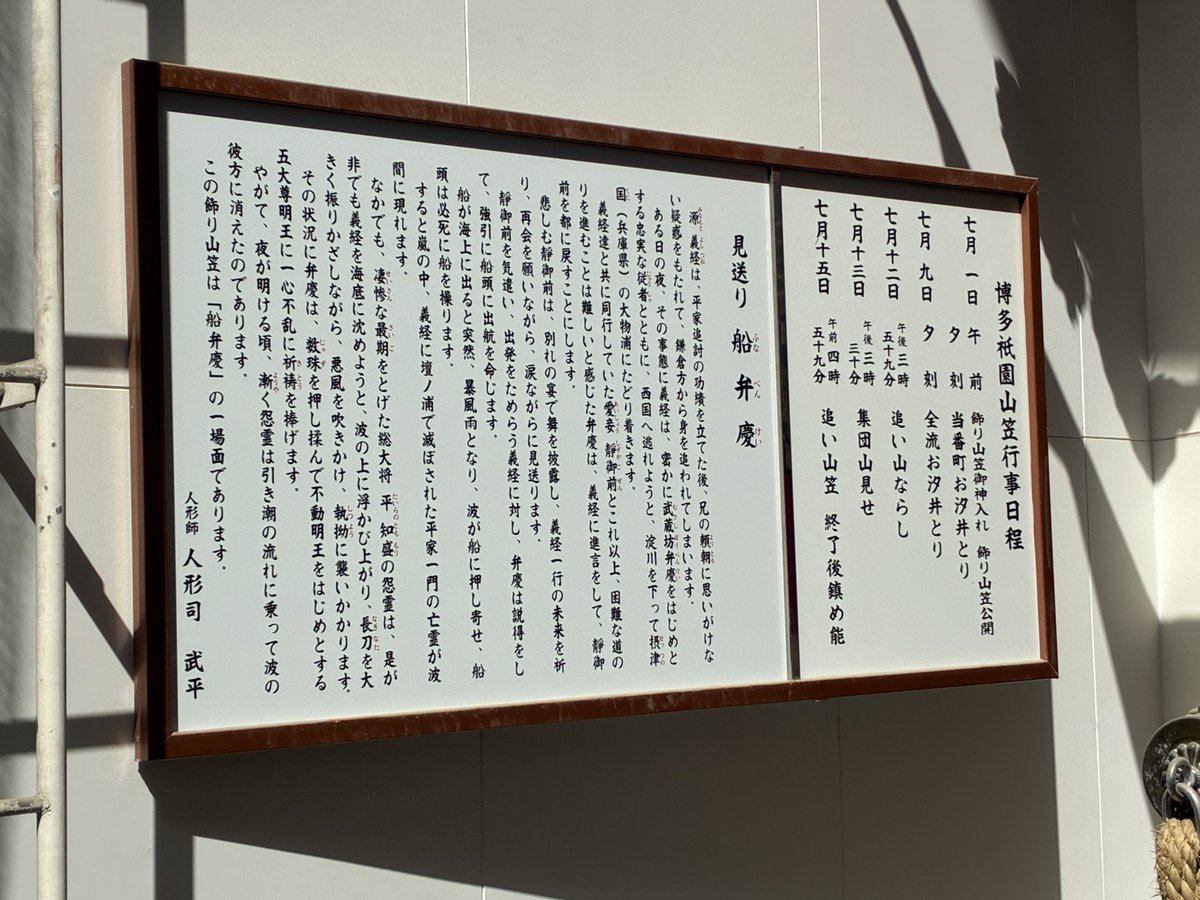 博多祇園山笠行事日程
七月 一日 午 前 飾り山笠御神入れ 飾り山笠公開
夕 刻 当番町お汐井とり
七月 九日 夕 刻 全流お汐井とり
七月十二日 午後 三時五十九分 追い山ならし
七月十三日 午後 三時三十分 集団山見せ
七月十五日 午前 四時五十九分 追い山笠 終了後鎮め能
見送り 船弁慶
源 義経は、平家追討の功績を立てた後、兄の頼朝に思いがけな
い疑惑をもたれて、鎌倉方から身を追われてしまいます。
ある日の夜、その事態に義経は、密かに武蔵坊弁慶をはじめと
する忠実な従者とともに、西国へ逃れようと、淀川を下って摂津
国(兵庫県)の大物浦にたどり着きます。
義経達と共に同行していた愛妾 静御前とこれ以上、困難な道の
りを進むことは難しいと感じた弁慶は、義経に進言をして、静御
前を都に戻すことにします。
悲しむ静御前は、別れの宴で舞を披露し、義経一行の未来を祈
り、再会を願いながら、涙ながらに見送ります。
静御前を気遣い、出発をためらう義経に対し、弁慶は説得をし
て、強引に船頭に出航を命じます。
船が海上に出ると突然、暴風雨となり、波が船に押し寄せ、船
頭は必死に船を操ります。
すると嵐の中、義経に壇ノ浦で滅ぼされた平家一門の亡霊が波
間に現れます。
なかでも、凄惨な最期をとげた総大将 平 知盛の怨霊は、是が
非でも義経を海底に沈めようと、波の上に浮かび上がり、長刀を大
きく振りかざしながら、悪風を吹きかけ、執拗に襲いかかります。
その状況に弁慶は、数珠を押し揉んで不動明王をはじめとする
五大尊明王に一心不乱に祈祷を捧げます。
やがて、夜が明ける頃、漸く怨霊は引き潮の流れに乗って波の
彼方に消えたのであります。
この飾り山笠は「船弁慶」の一場面であります。
人形師 人形司 武平